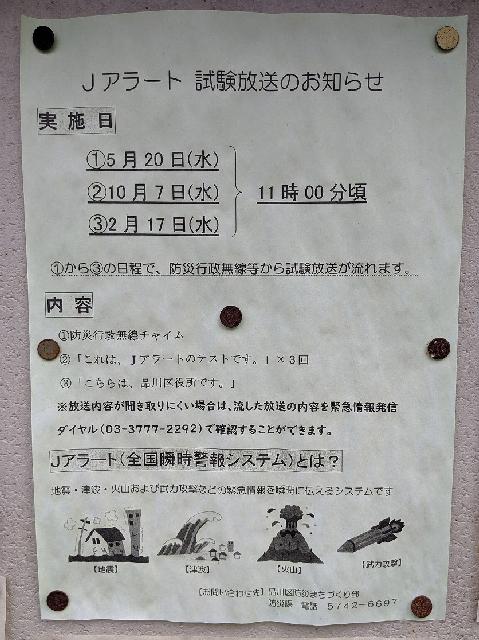 Jアラート 試験放送のお知らせ
実施日
①5月20日(水)
②10月7日(水)
③2月17日(水)
11時00分頃
①から③の日程で、防災行政無線等から試験放送が流れます。
内容
①防災行政無線チャイム
②「これは、Jアラートのテストです。」×3回
③「こちらは、品川区役所です。」
※放送内容が聞き取りにくい場合は、流した放送の内容を緊急情報発信
ダイヤル(03-3777-2292)で確認することができます。
Jアラート(全国瞬時警報システム)とは?
地震・津波・火山および武力攻撃などの緊急情報を瞬時に伝えるシステムです
【地震】 【津波】 【火山】 【武力攻撃】
【お問い合わせ先】品川区防災まちづくり部
防災課 電話 5742-6697